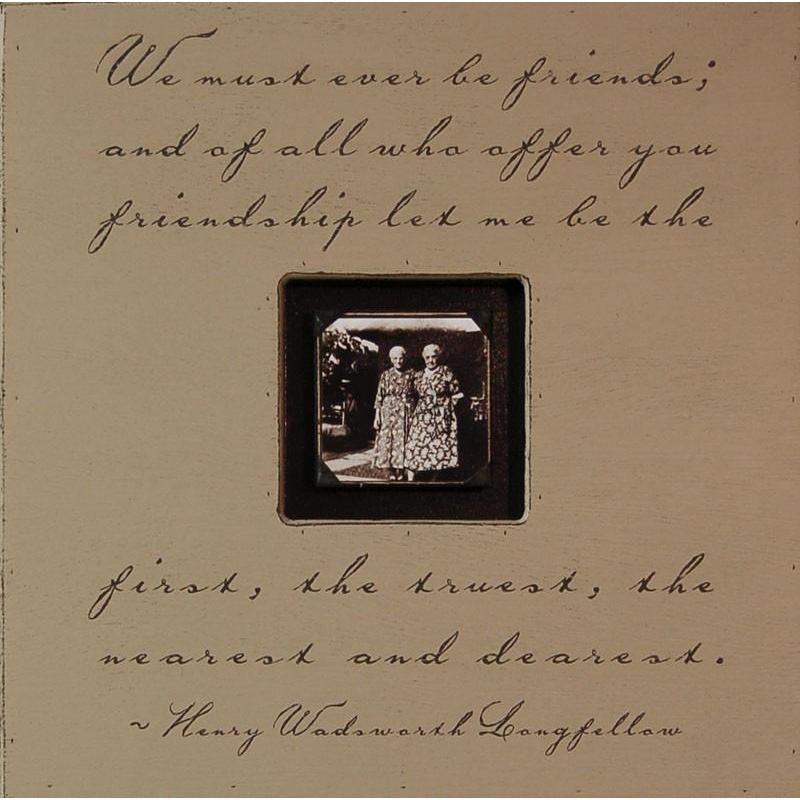 We must ever be friends;
and of all who offer you
friendship let me be the
first, the truest, the
nearest and dearest.
~ Henry Wadsworth Longfellow